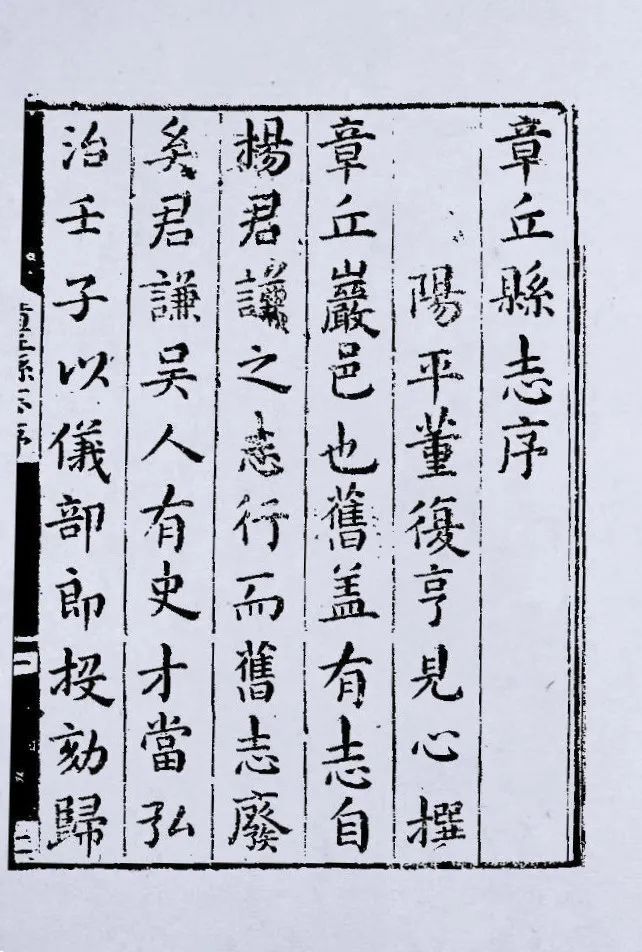 章丘縣志序
陽平董復亨見心撰
章丘巖邑也舊盖有志自
楊君謙之志行而舊志廢
矣君謙吴人有史才當弘
治壬子以儀部郎投劾歸
章丘縣志序